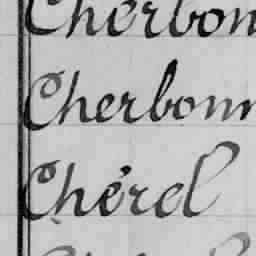 Cherbon
Cherbonn
Chérel